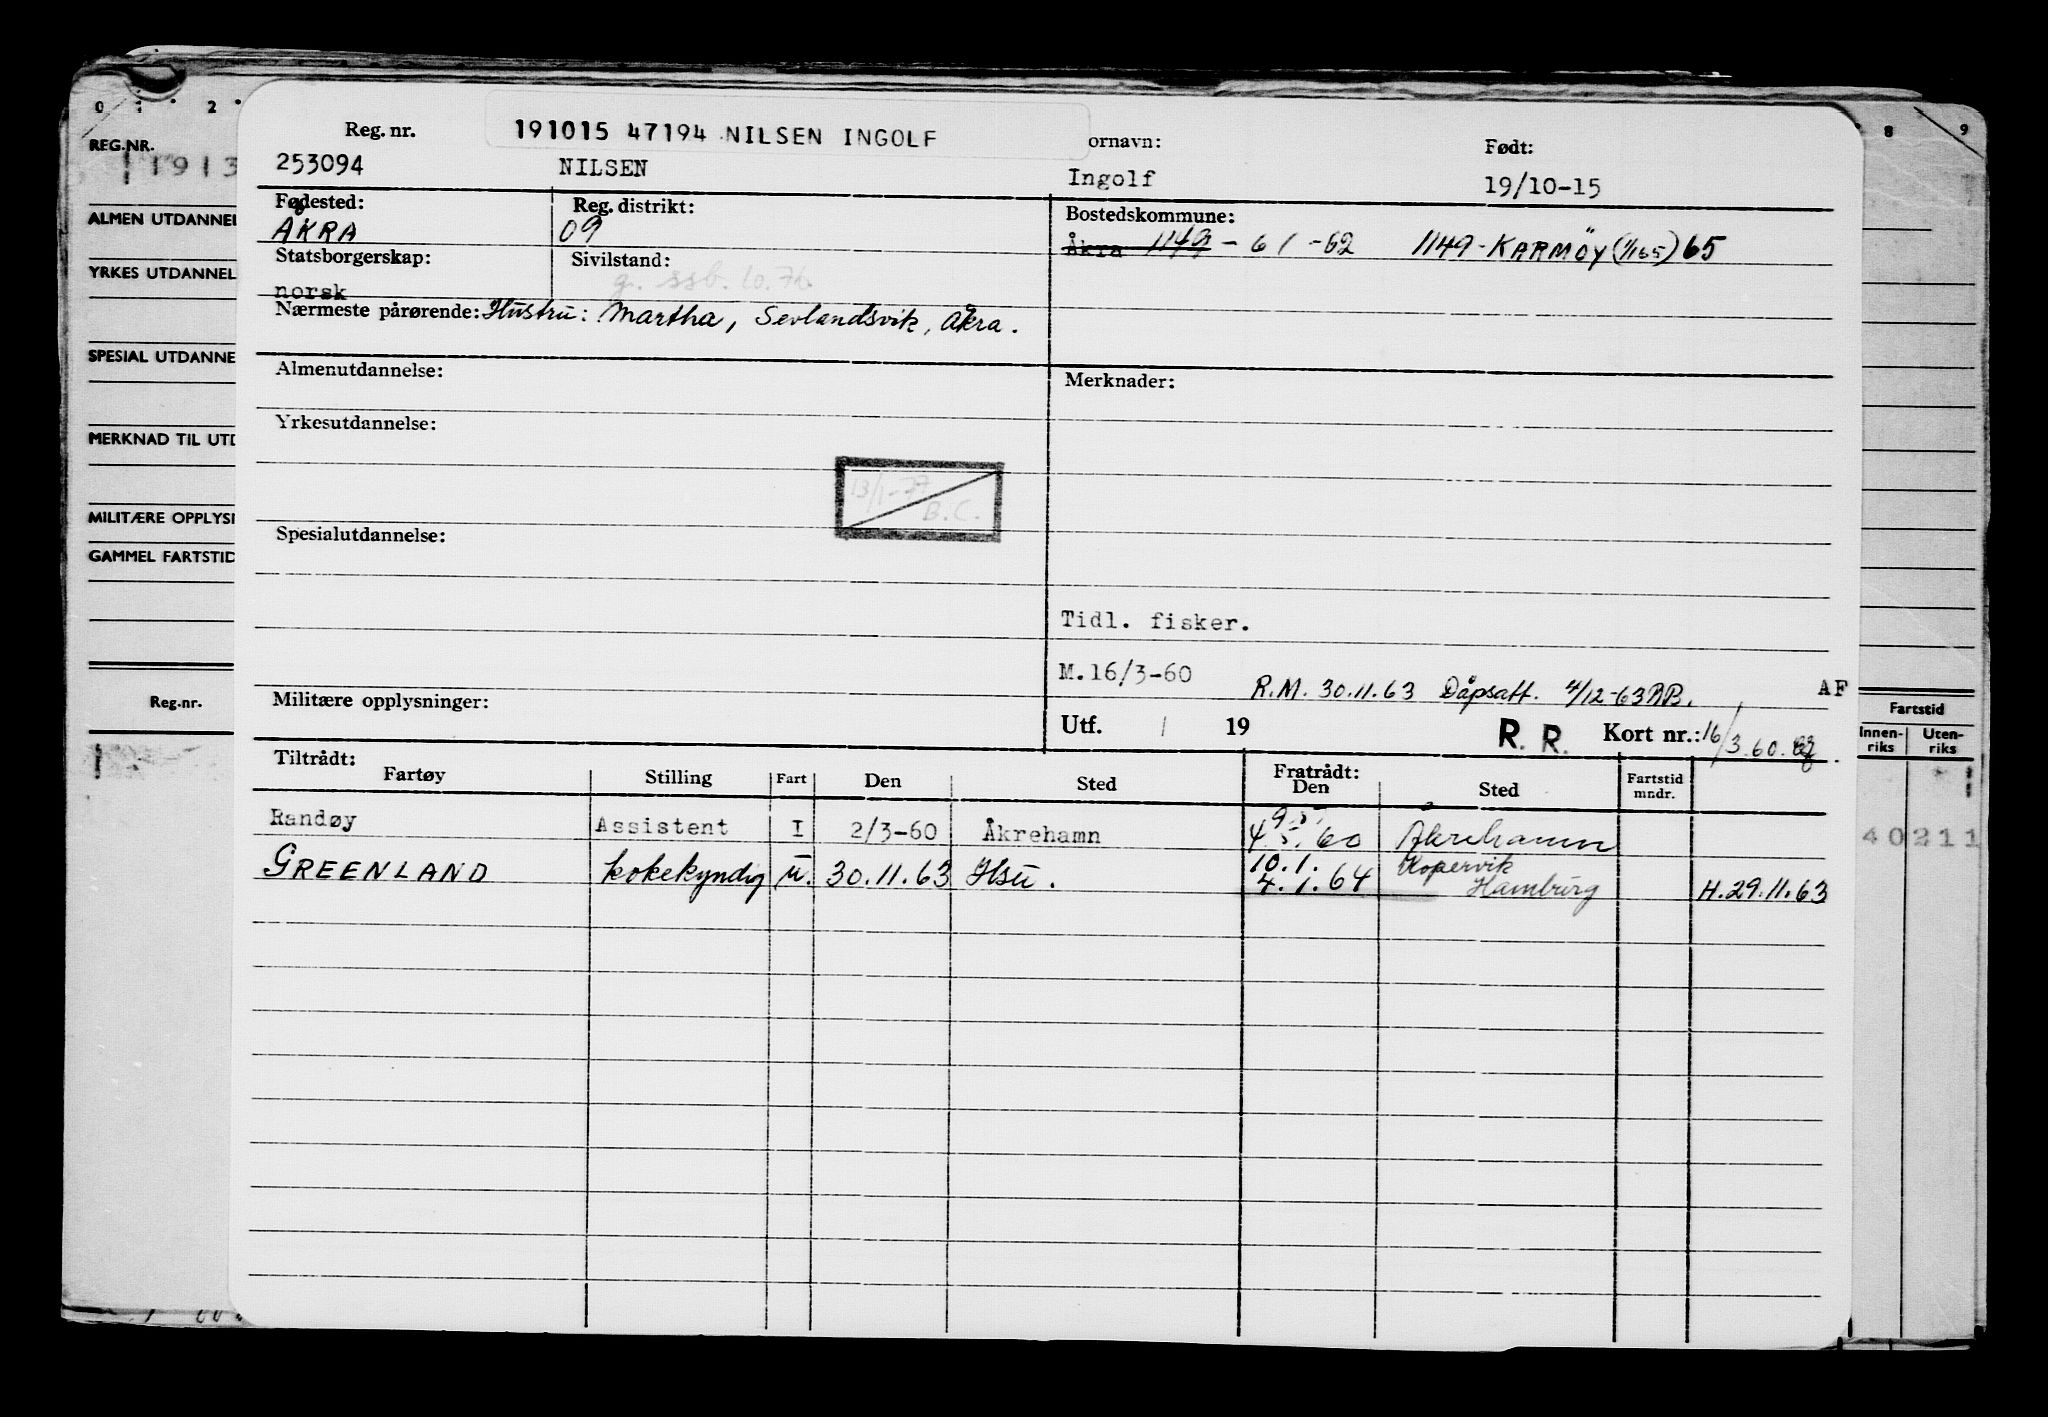 0 1 2
8 9
REG.NR.
1913
ALMEN UTDANNEL
YRKES UTDANNEL
SPESIAL UTDANNE
MERKNAD TIL UTD
MILITÆRE OPPLYSN
GAMMEL FARTSTID
Reg.nr.
191015 47194 NILSEN INGOLF
Reg. nr. ornavn: Født:
253094 NILSEN Ingolf 19/10-15
Fødested: Reg. distrikt: Bostedskommune:
ÅKRA 09 Åkra 1149 - 61 -62 1149 - KARMØY (1/1 65) 65
Statsborgerskap: Sivilstand:
norsk g. ssb. 10.76
Nærmeste pårørende: Hustru: Martha, Sevlandsvik, Åkra.
Almenutdannelse: Merknader:
Yrkesutdannelse:
13/1-77
B.C.
Spesialutdannelse:
Tidl. fisker.
M.16/3-60
R.M. 30.11.63 Dåpsatt. 4/12-63 AF
Militære opplysninger: Utf. / 19 R. R. Kort nr.: 16/3.60.
Tiltrådt: Fratrådt:
Fartøy Stilling Fart Den Sted Den Sted Fartstid mndr.
Randøy Assistent I 2/3-60 Åkrehamn 4.5.60 Åkrehamn
9.5.
GREENLAND kokekyndig u. 30.11.63 Hsu. 4.1.64 Hamburg H.29.11.63
10.1. Kopervik
Fartstid
Innen-riks Uten-riks
40211